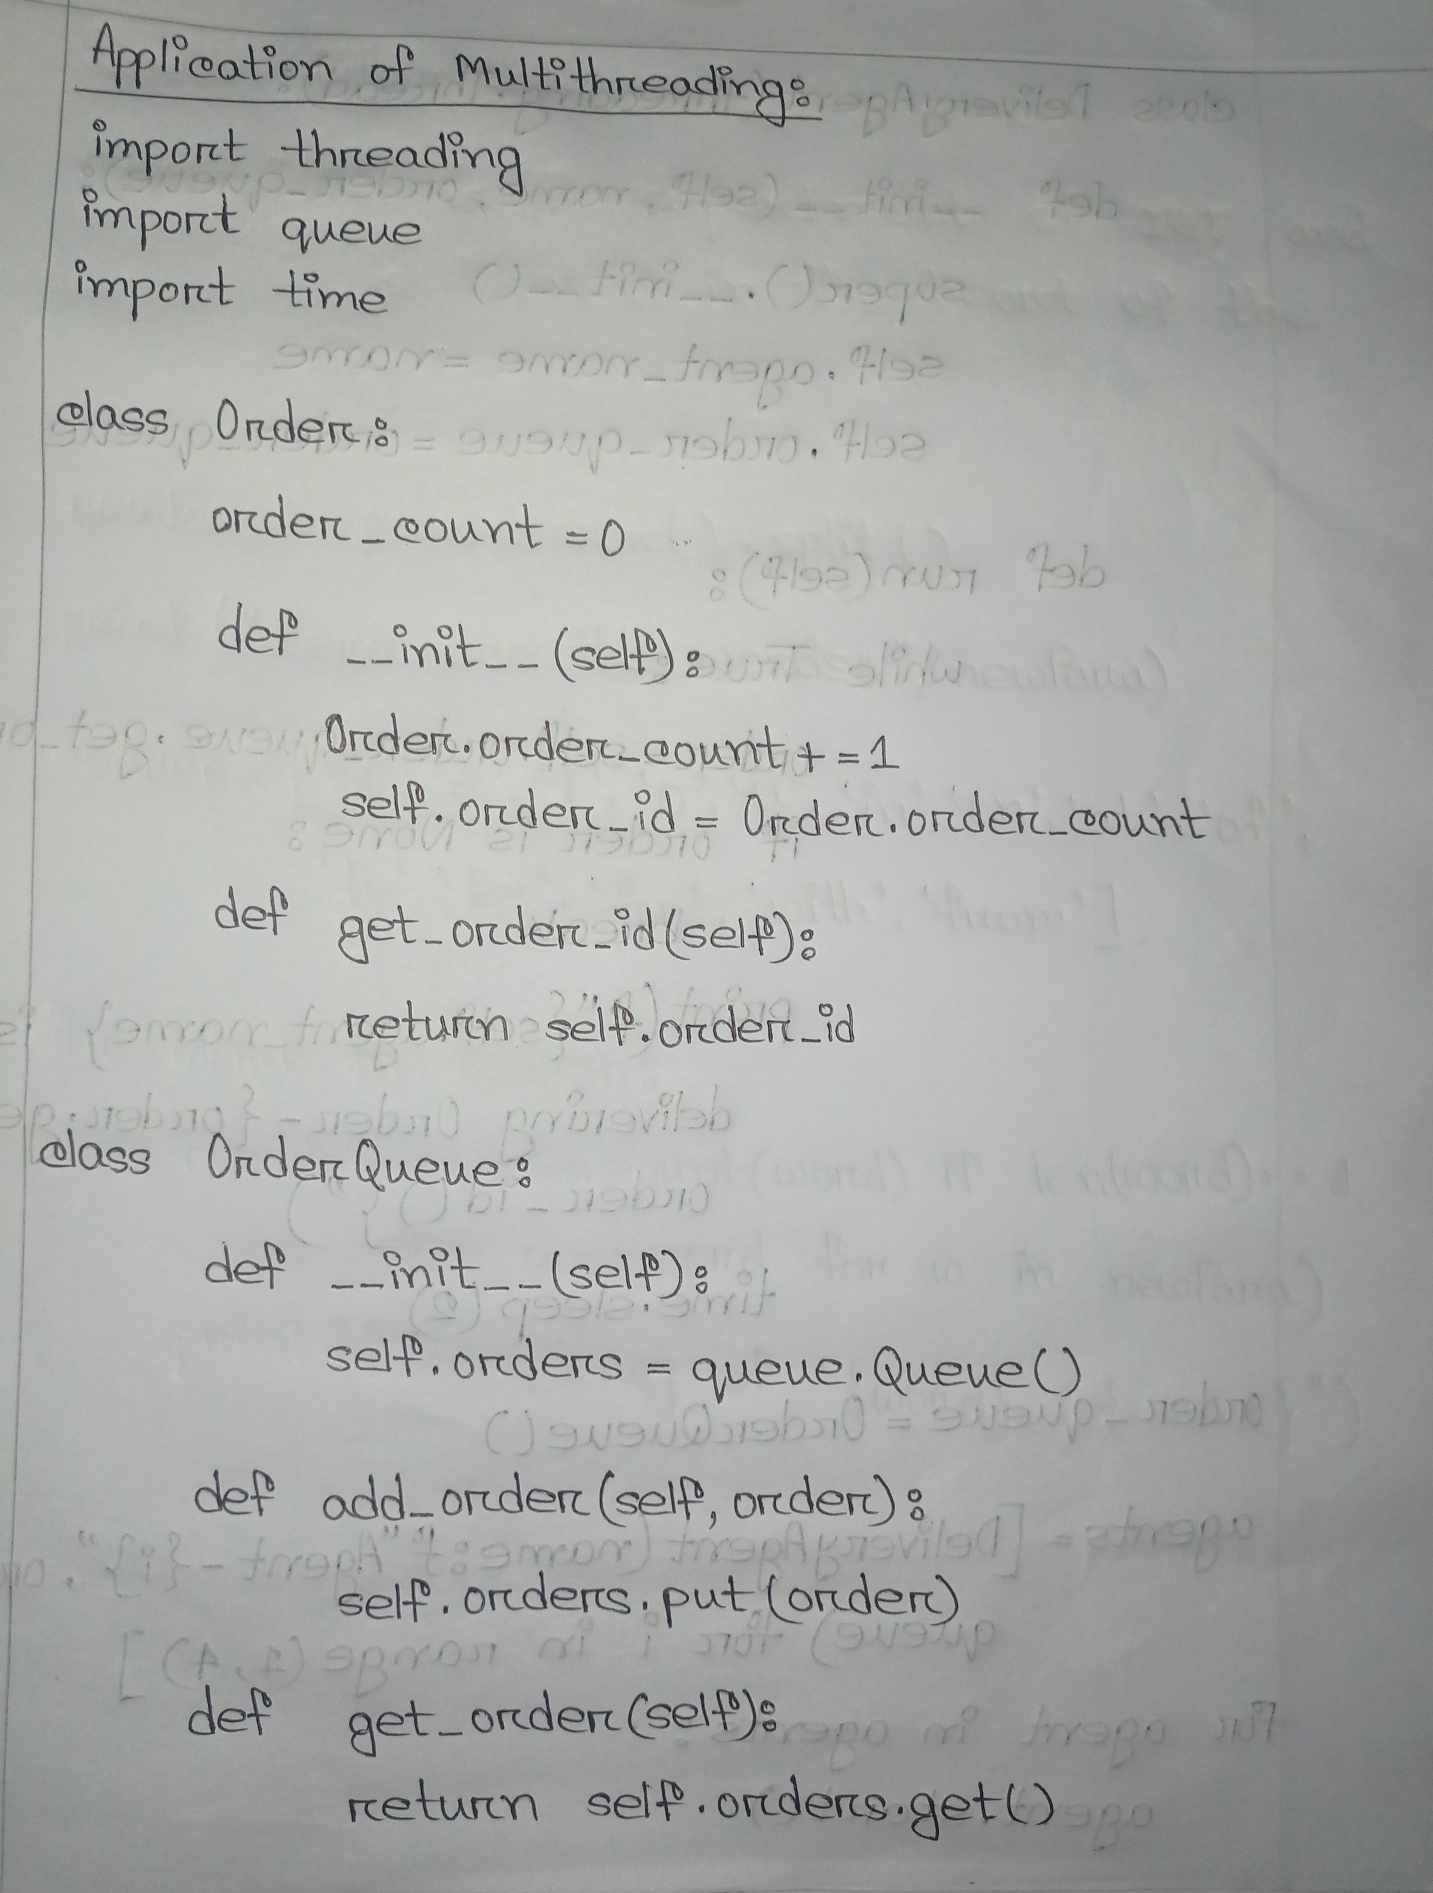 Application of Multithreading:
import threading
import queue
import time
class Order:
order_count = 0
def __init__(self):
Order.order_count += 1
self.order_id = Order.order_count
def get_order_id(self):
return self.order_id
class OrderQueue:
def __init__(self):
self.orders = queue.Queue()
def add_order(self, order):
self.orders.put(order)
def get_order(self):
return self.orders.get()